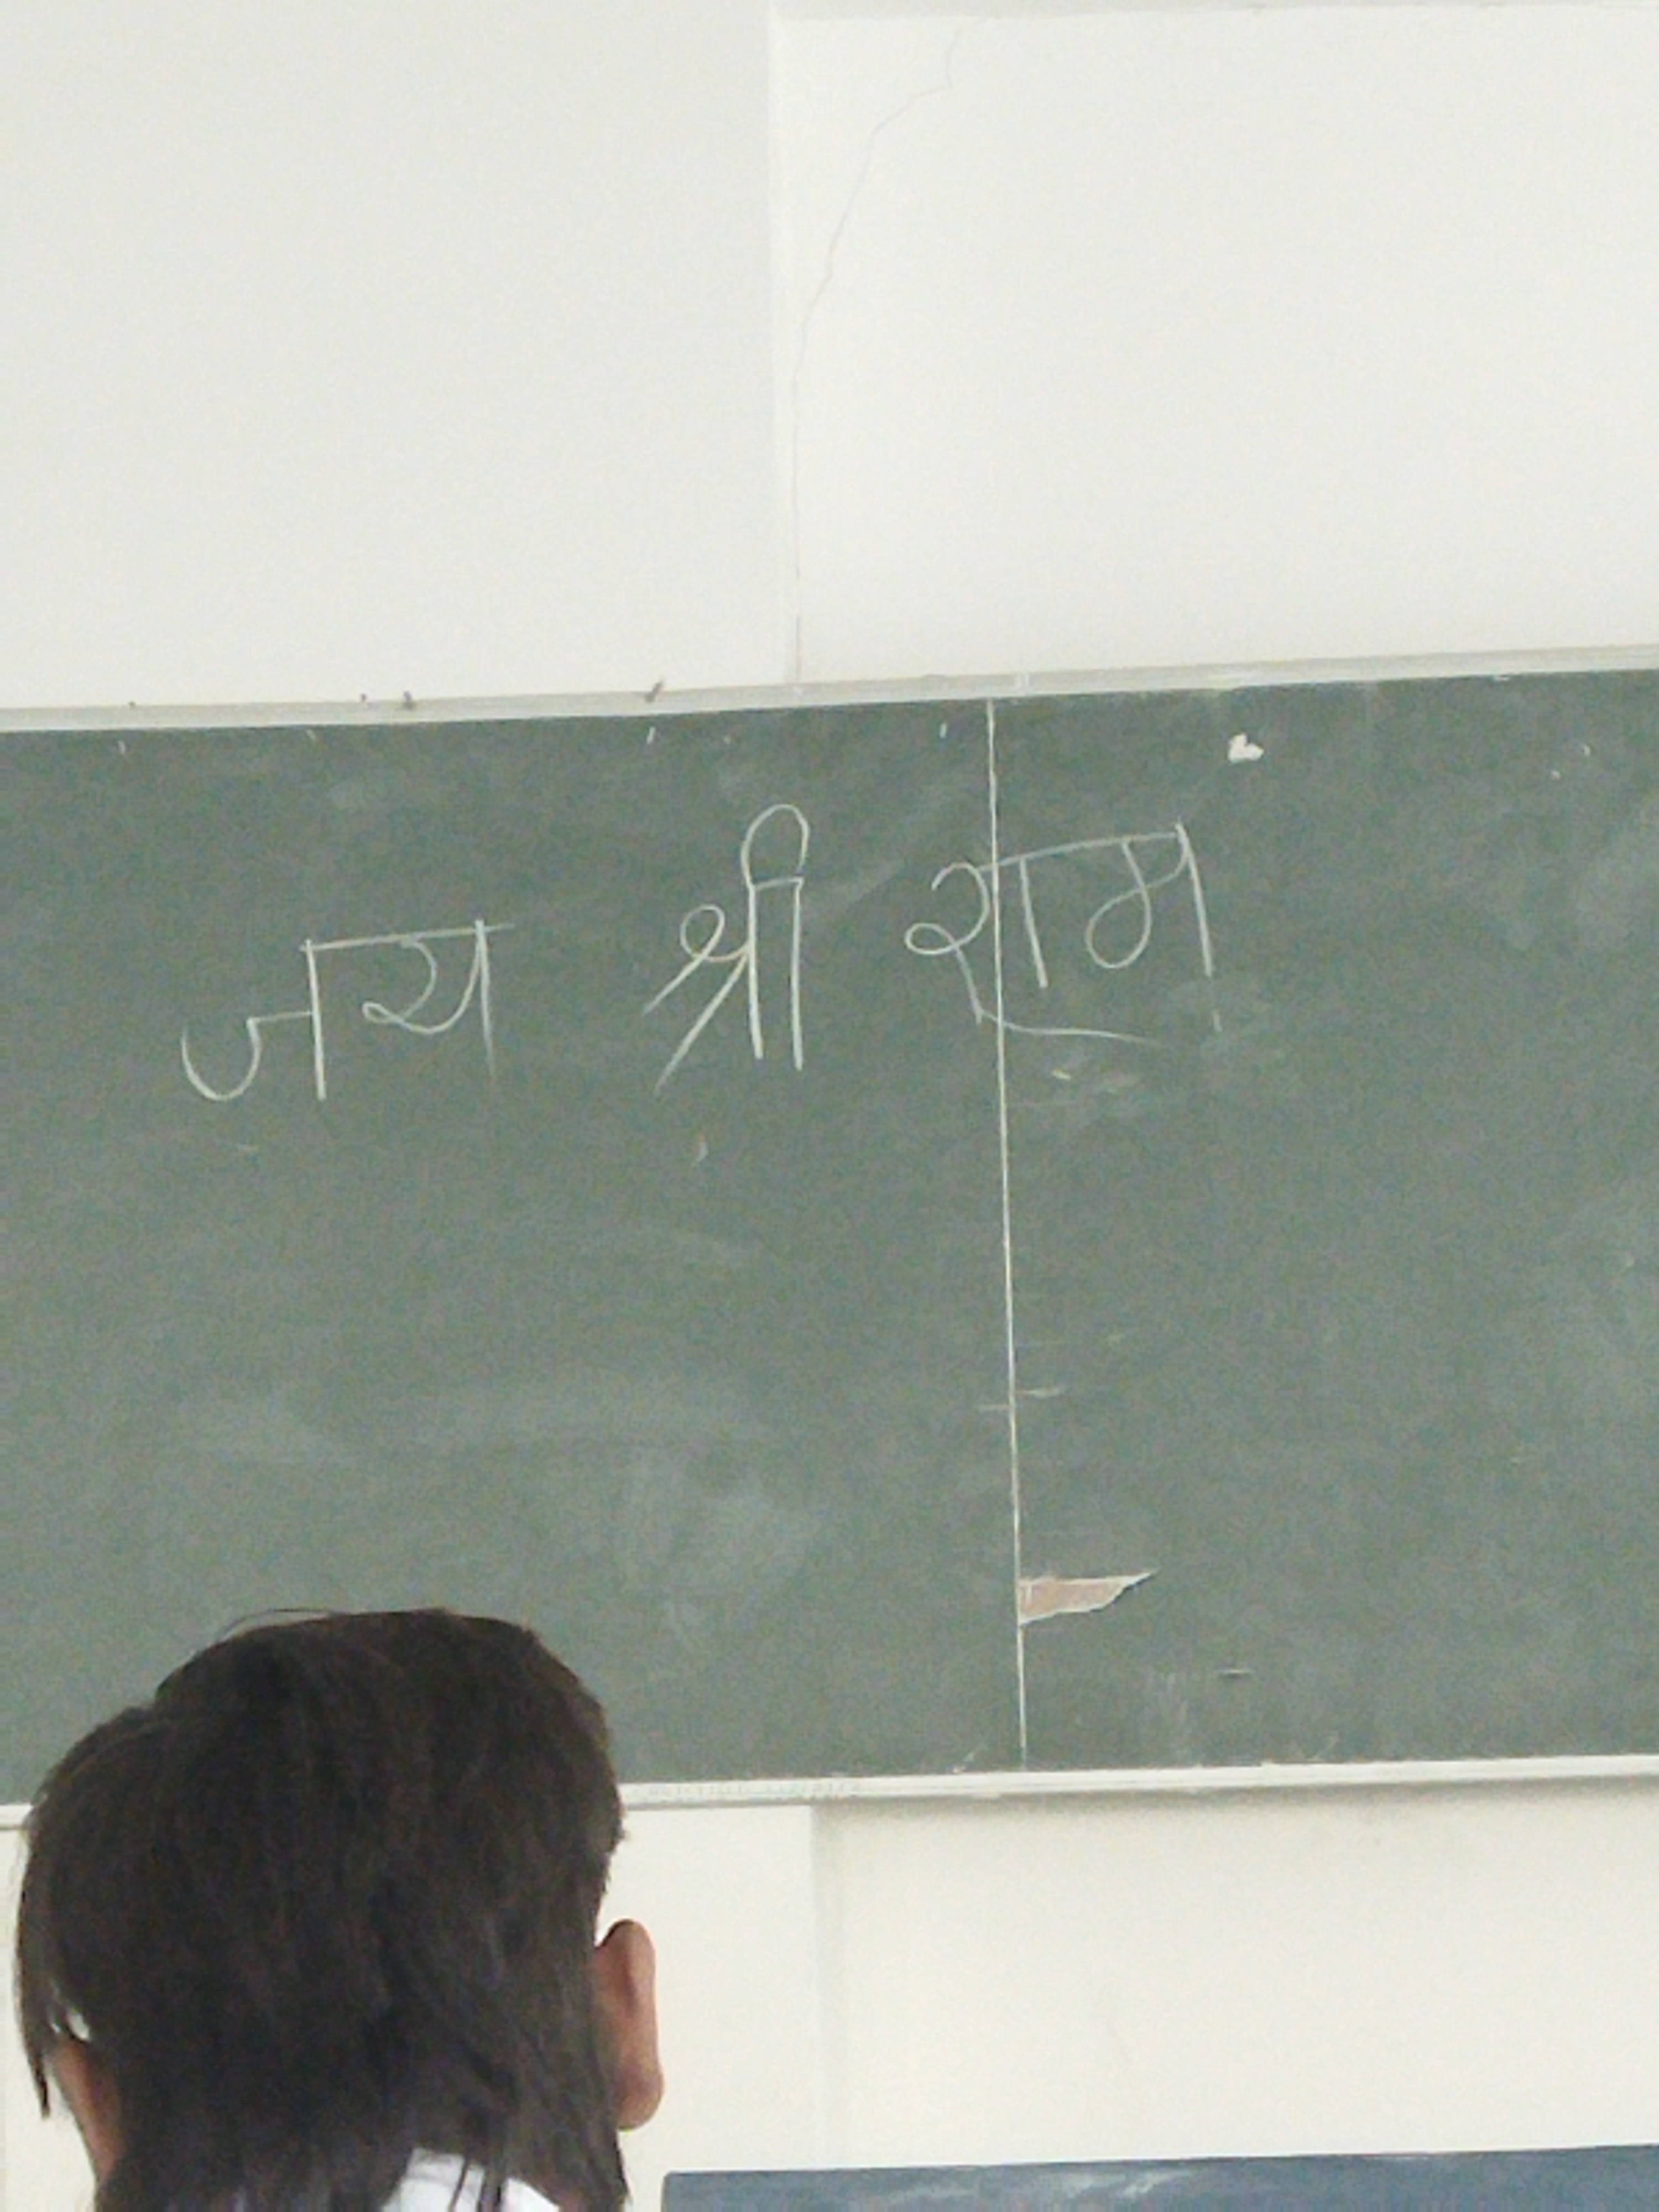 जय श्री राम